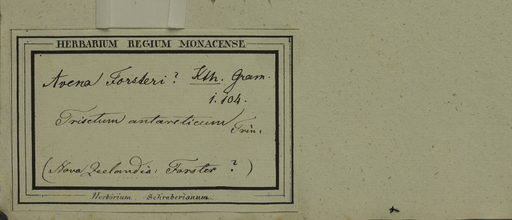 HERBARIUM REGIUM MONACENSE
Avena Forsteri? Kth. Gram.
1. 104.
Trisetum antarcticum Trin.
(Nova Zeelandia: Forster ?)
Herbarium Schreberianum.